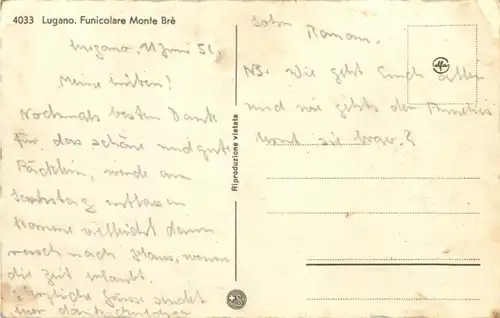 4033 Lugano. Funicolare Monte Brè
Lugano, 11 Juni 51.
Meine Lieben!
Nochmals besten Dank
für das schöne und gute
Päcklein, werde am
Samstag entlassen
komme vielleicht dann
rasch nach Haus, wenn
die Zeit erlaubt.
Herzliche Grüsse sendet
Euer dankbar
Sohn Roman.
NB. Wie geht Euch allen
und wie gehts
sie brav?
Riproduzione vietata